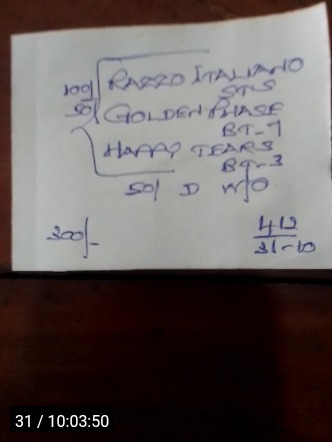 100/ RAZZO ITALIANO
STS
50/ GOLDEN PHASE
BT-7
HAPPY TEARS
BT-3
50/ D W/O
300/-
412
31-10
31 / 10:03:50